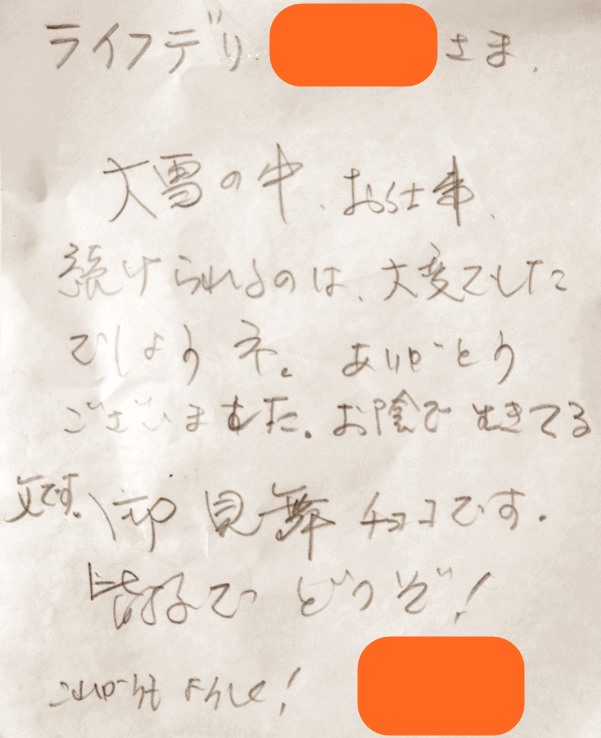 ライフデリ さま.
大雪の中、お仕事、
続けられるのは、大変でした
でしょうネ。ありがとう
ございました。お陰で生きてる
父です。御見舞チョコです.
皆んなで どうぞ!
これからもよろしく!